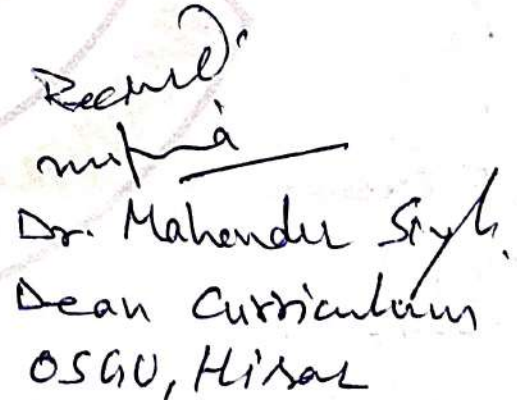 Received
Dr. Mahender Singh
Dean Curriculum
OSGU, Hisar